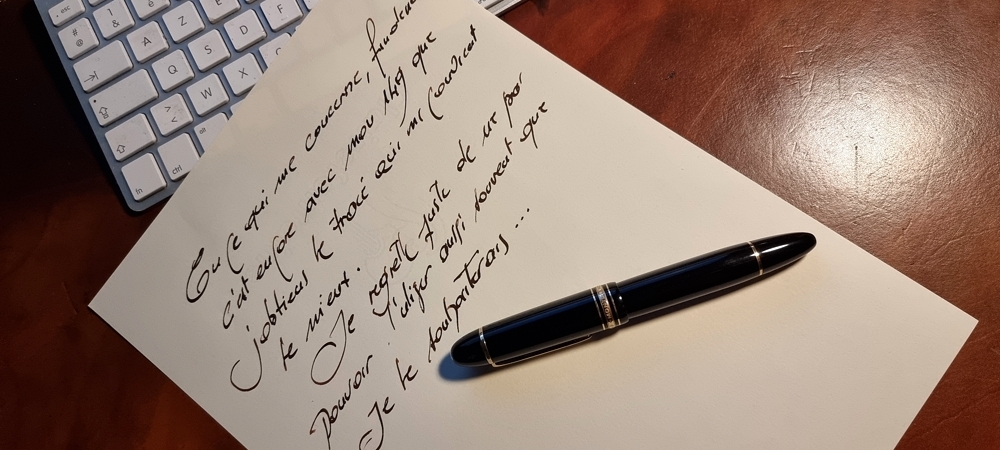 En ce qui me concerne,
c'est encore avec mon 149 que
j'obtiens le tracé qui me convient
le mieux.
Je regrette juste de ne pas
pouvoir l'utiliser aussi souvent que
Je le souhaiterais...
esc
&
1
é
@
#
A
Z
E
R
F
Q
S
D
W
X
>
<
fn
ctrl
alt